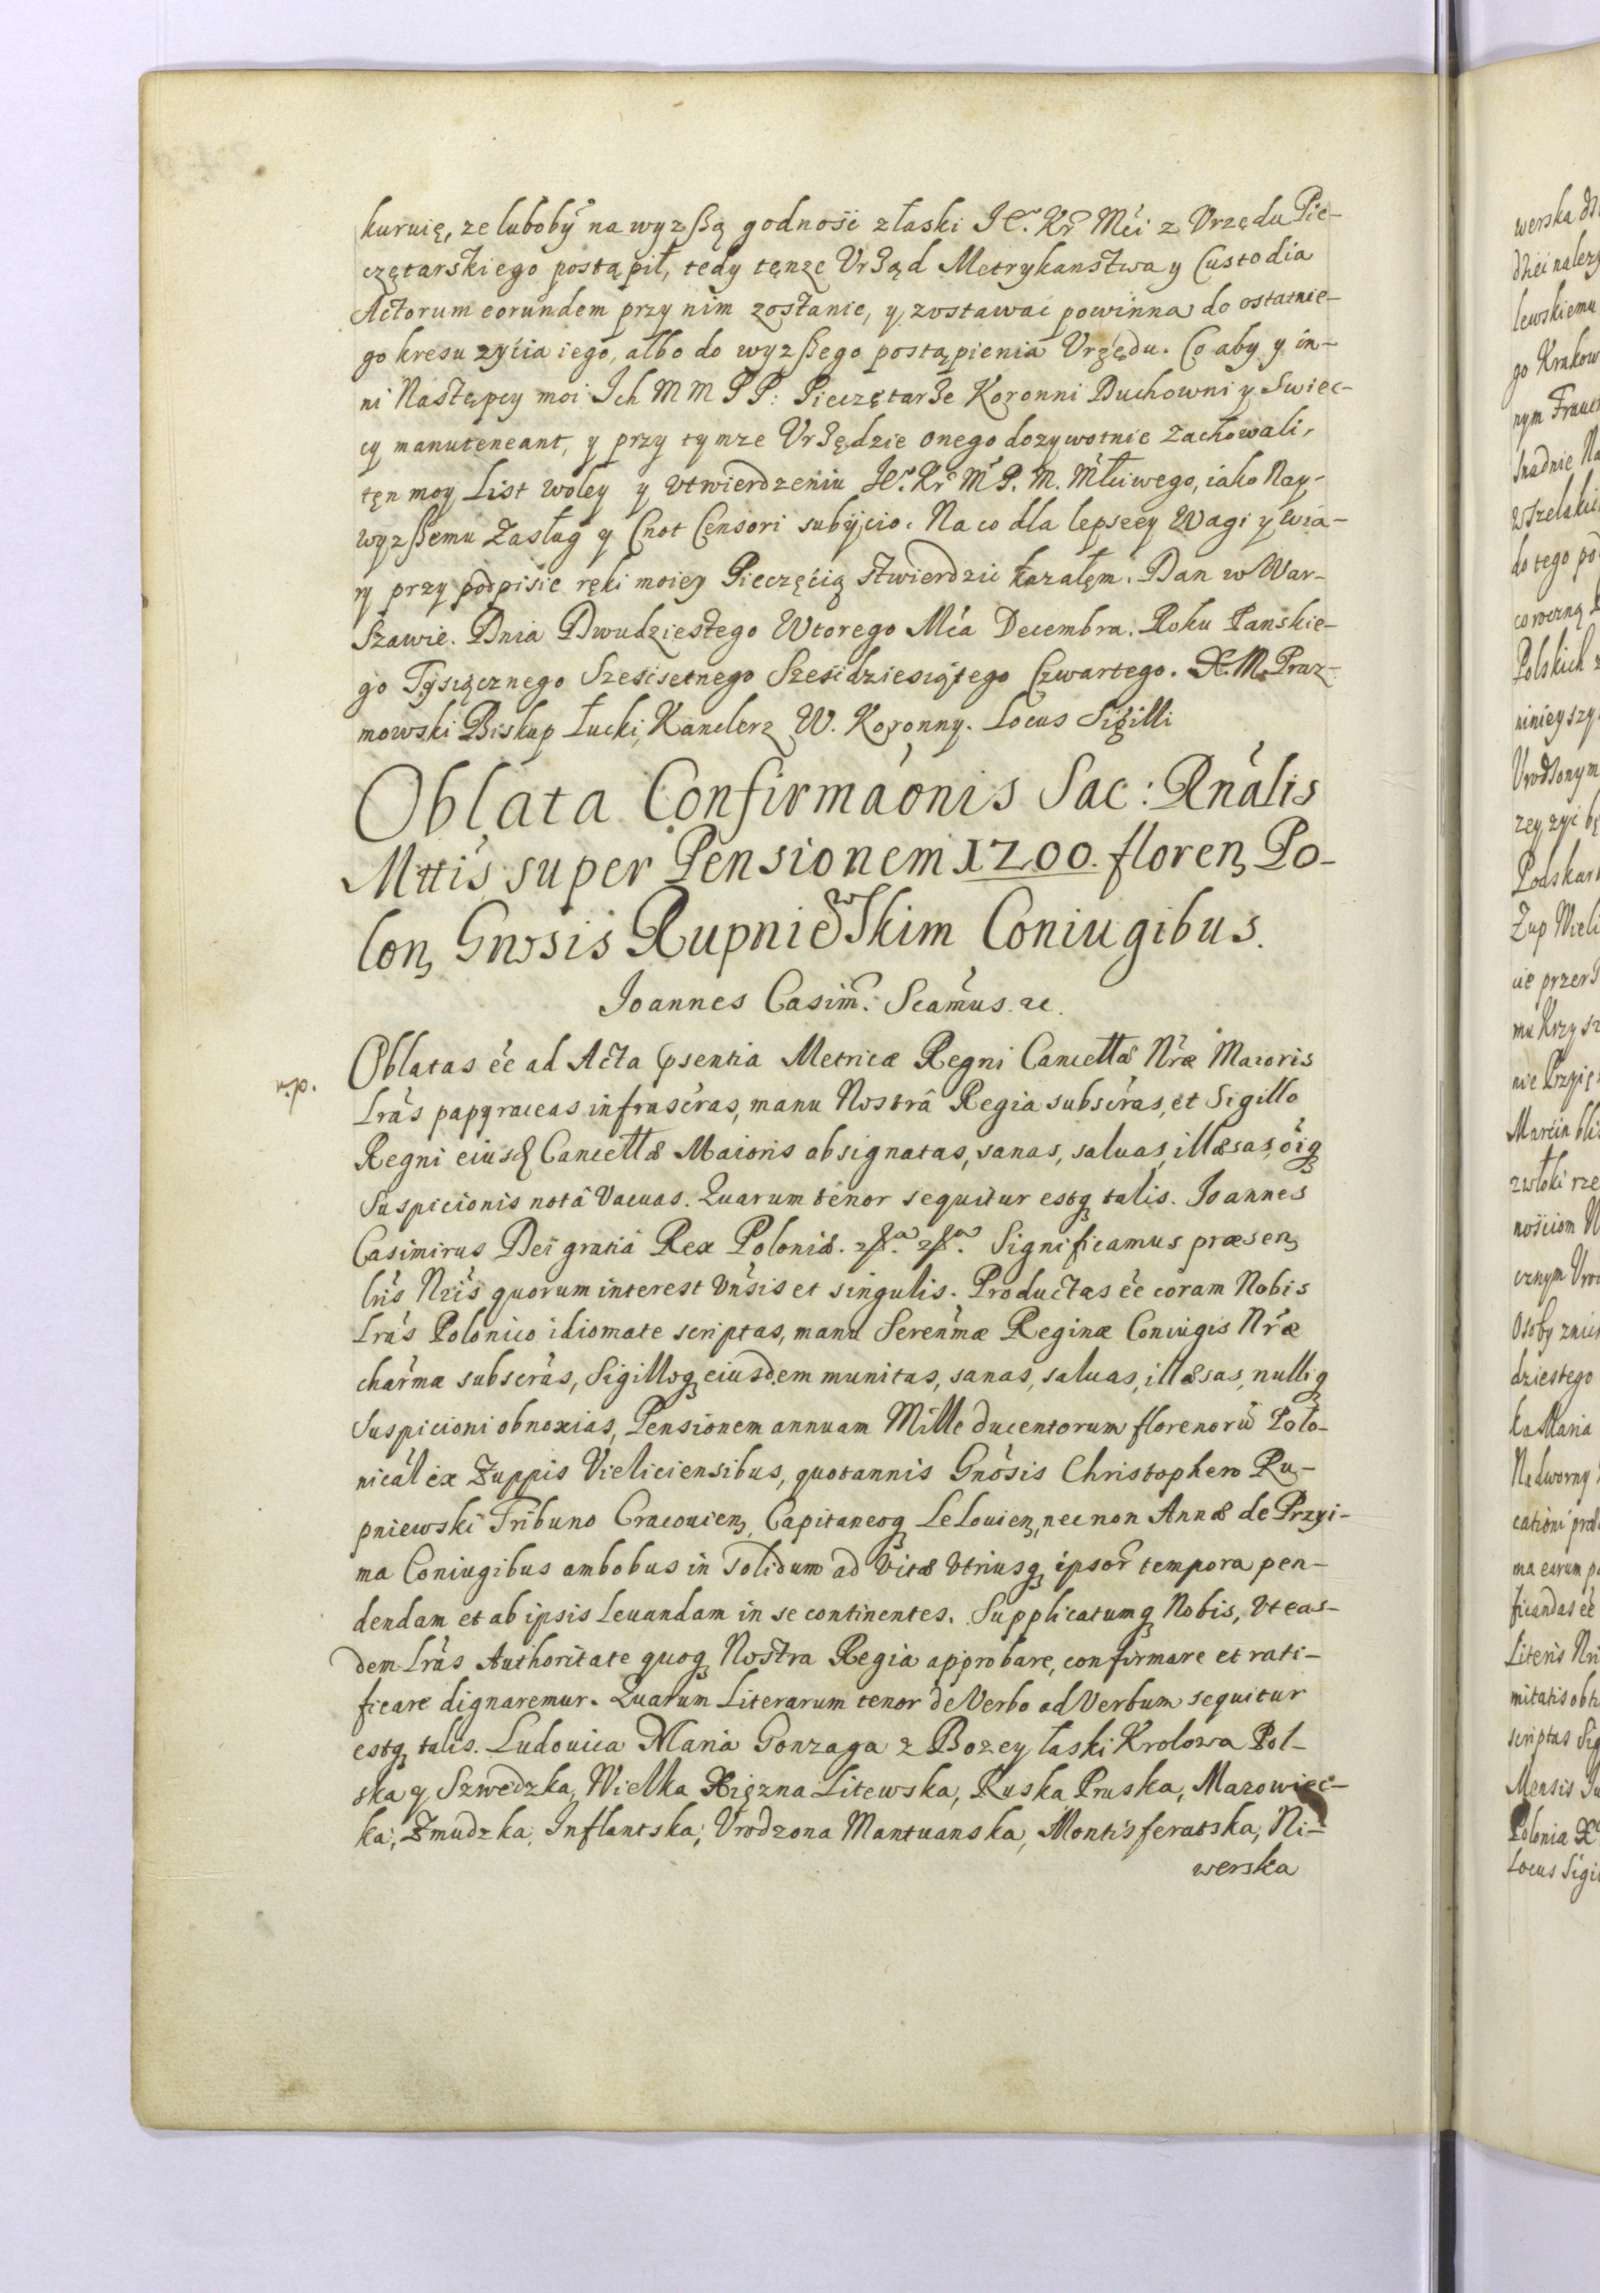 kuruię, ze luboby na wyzßą godność złaski Je°. Kr Mći z Vrzędu Pie-
czętarskiego postąpił, tedy tęnze Vrząd Metrykanstwa y Custodia
Actorum eorundem przy nim zostanie, y zostawać powinna do ostatnie-
go kresu zyćia iego, albo do wyzßego postąpienia Vrzędu. Co aby y in-
ni Następcy moi Ich M M P P: Pieczętarze Koronni Duchowni y Swiec-
cy manuteneant, y przy tymze Vrzędzie onego dozywotnie zachowali,
tęn moy List woley y vtwierdzeniu Je°. Kr M P. M. Młćiwego, iako Nay-
wyzßemu Zasług y Cnot Censori subijcio. Na co dla lepsezy Wagi y wia-
ry przy podpisie ręki moiey Pieczęćią stwierdzić kazałęm. Dan w War-
szawie. Dnia Dwudziestego Wtorego Mća Decembra. Roku Panskie-
go Tysiącznego Szescsetnego Szescdziesiątego Czwartego. X. M. Praz-
mowski Biskup Łucki, Kanclerz W. Koronny. Locus Sigilli
Oblata Confirmãonis Sac: Rnãlis
Mttis super Pensionem 1200. floren̨ Po-
lon̨ Gnosis Rupniewskim Coniugibus.
Joannes Casim̃. Seãmus. ac.
r.p.
Oblatas ẽe ad Acta p̃sentia Metricæ Regni Cancellæ Nr̃æ Maioris
Lr̃as papyraceas infrascr̃as, manu Nostrâ Regia subscr̃as, et Sigillo
Regni eiusd Cancellæ Maioris obsignatas, sanas, saluas, illæsas, õiq
Suspicionis notâ vacuas. Quarum tenor sequitur estq talis. Joannes
Casimirus Dei gratiâ Rex Poloniæ. &a. &a. Significamus præsen̨
lr̃is Nr̃is quorum interest vn̄sis et singulis. Productas ẽe coram Nobis
Lr̃as Polonico idiomate scriptas, manu Seren̄mæ Reginæ Coniugis Nr̃æ
char̃mæ subscr̃as, Sigilloq eiusdem munitas, sanas, saluas, illæsas, nulliq
Suspicioni obnoxias, Pensionem annuam Mille ducentorum florenorũ Polo-
nical ex Zuppis Vieliciensibus, quotannis Gnõsis Christophero Ru-
pniewski Tribuno Cracouien̨, Capitaneoq Lelouien̨, nec non Annæ de Przyi-
ma Coniugibus ambobus in solidum ad vitæ vtriusq ipsor̃ tempora pen-
dendam et ab ipsis leuandam in se continentes. Supplicatumq Nobis, vt eas-
dem Lr̃as Authoritate quoq Nostra Regia approbare, confirmare et rati-
ficare dignaremur. Quarum Literarum tenor de Verbo ad Verbum sequitur
estq talis. Ludouica Maria Gonzaga z Bozey łaski Krolowa Pol-
ska y Szwedzka, Wielka Xięzna Litewska, Ruska Pruska, Mazowiec-
ka, Zmudzka, Inflantska, Vrodzona Mantuanska, Montisferatska, Ni-
werska